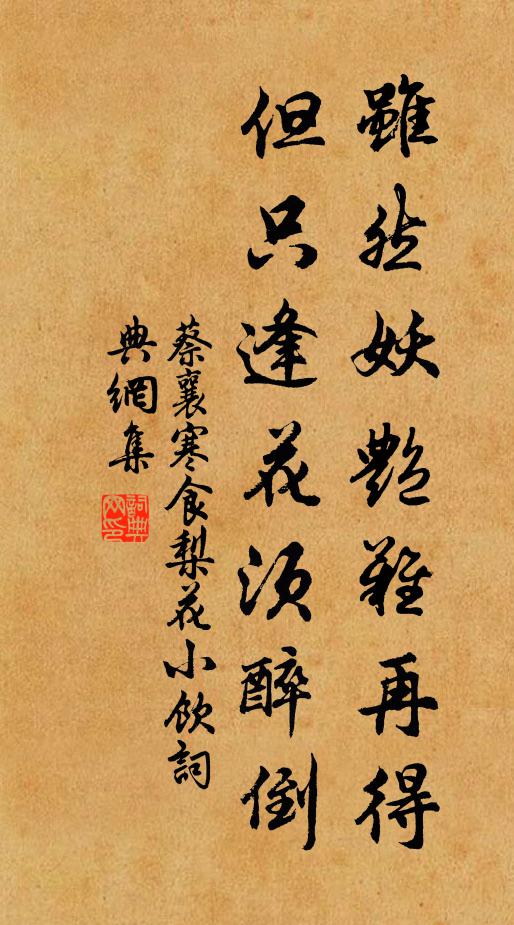 雖然妖艷難再得
但只逢花須醉倒
蔡襄寒食梨花小飲詞
典網集
詞典網印